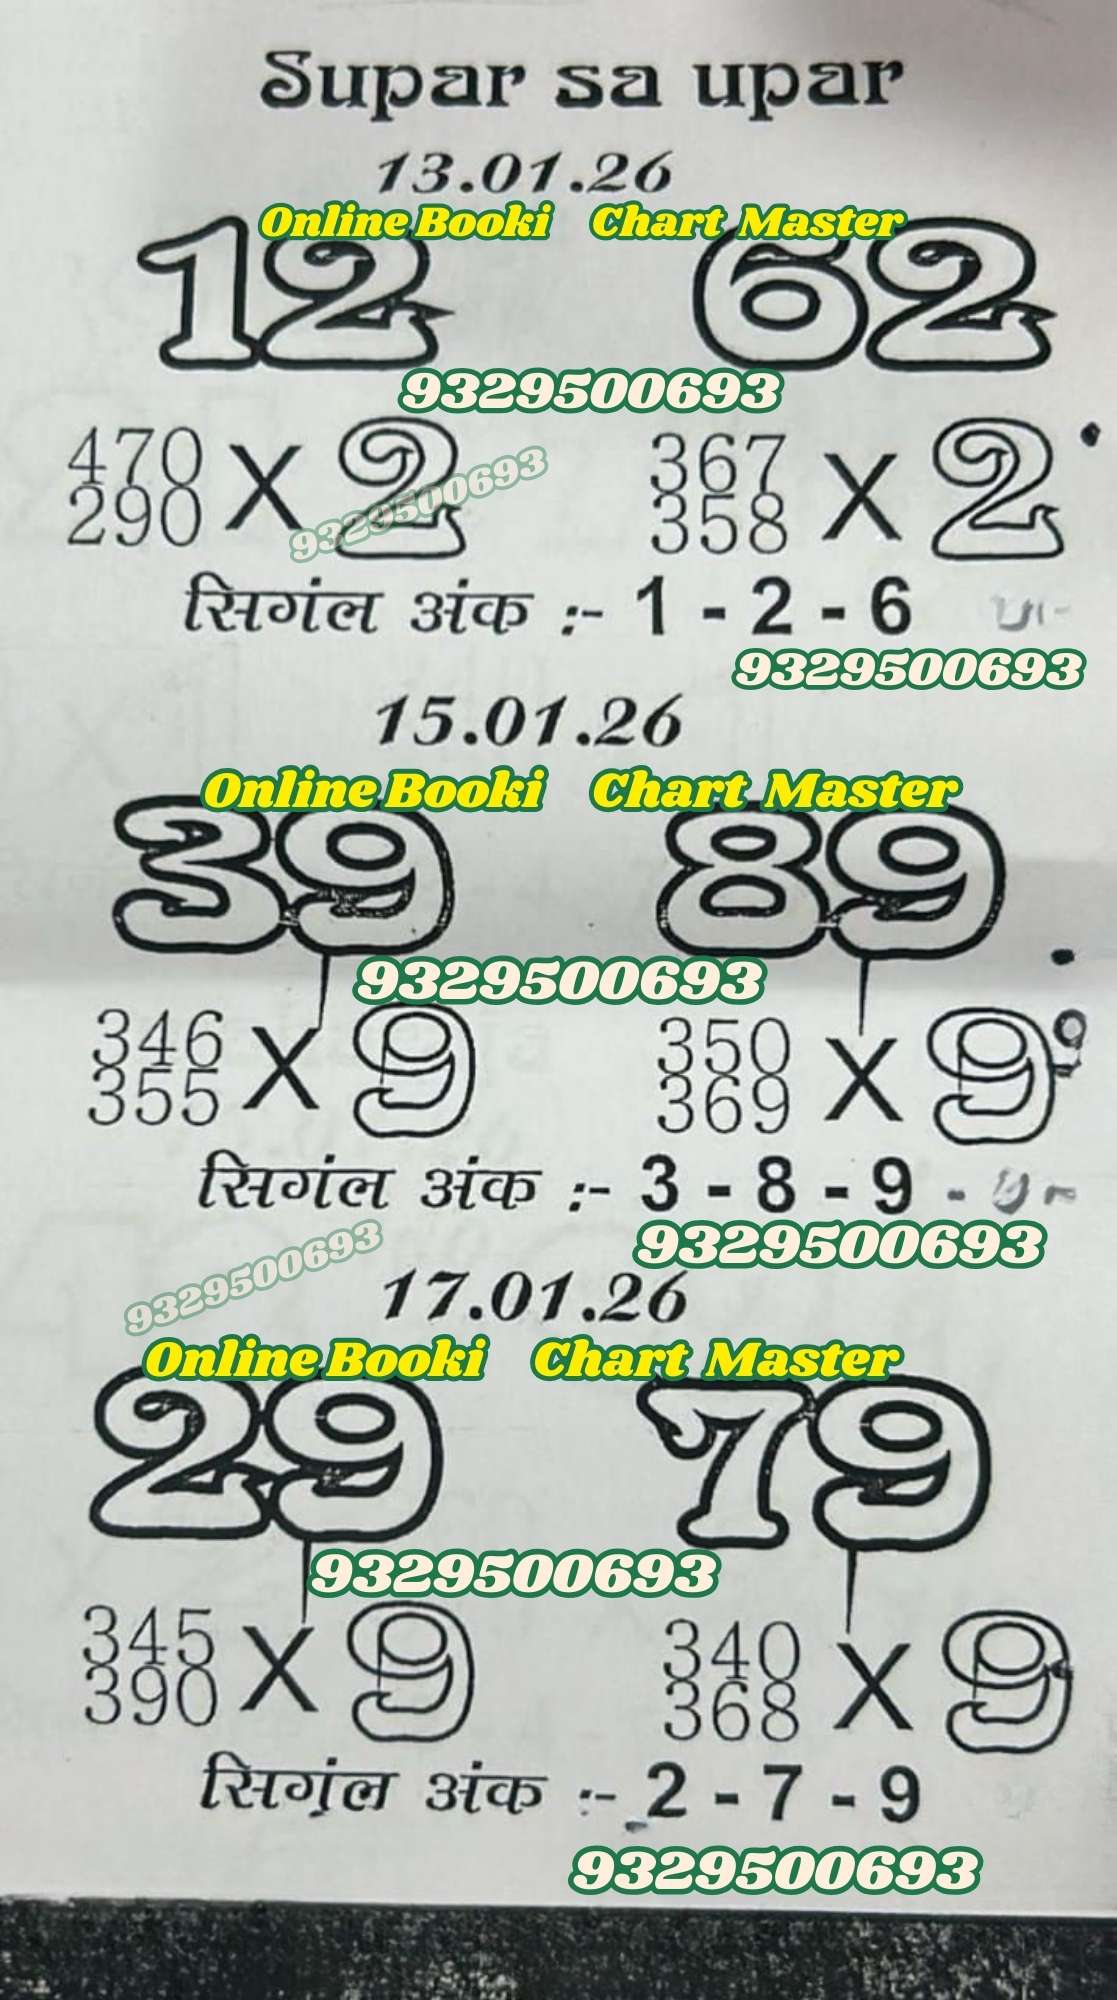 Supar sa upar
13.01.26
Online Booki Chart Master
12 62
9329500693
470 367
290 X 2 358 X 2
9329500693
सिगंल अंक :- 1 - 2 - 6
9329500693
15.01.26
Online Booki Chart Master
39 89
9329500693
346 350
355 X 9 369 X 9
सिगंल अंक :- 3 - 8 - 9
9329500693
9329500693
17.01.26
Online Booki Chart Master
29 79
9329500693
345 340
390 X 9 368 X 9
सिगंल अंक :- 2 - 7 - 9
9329500693